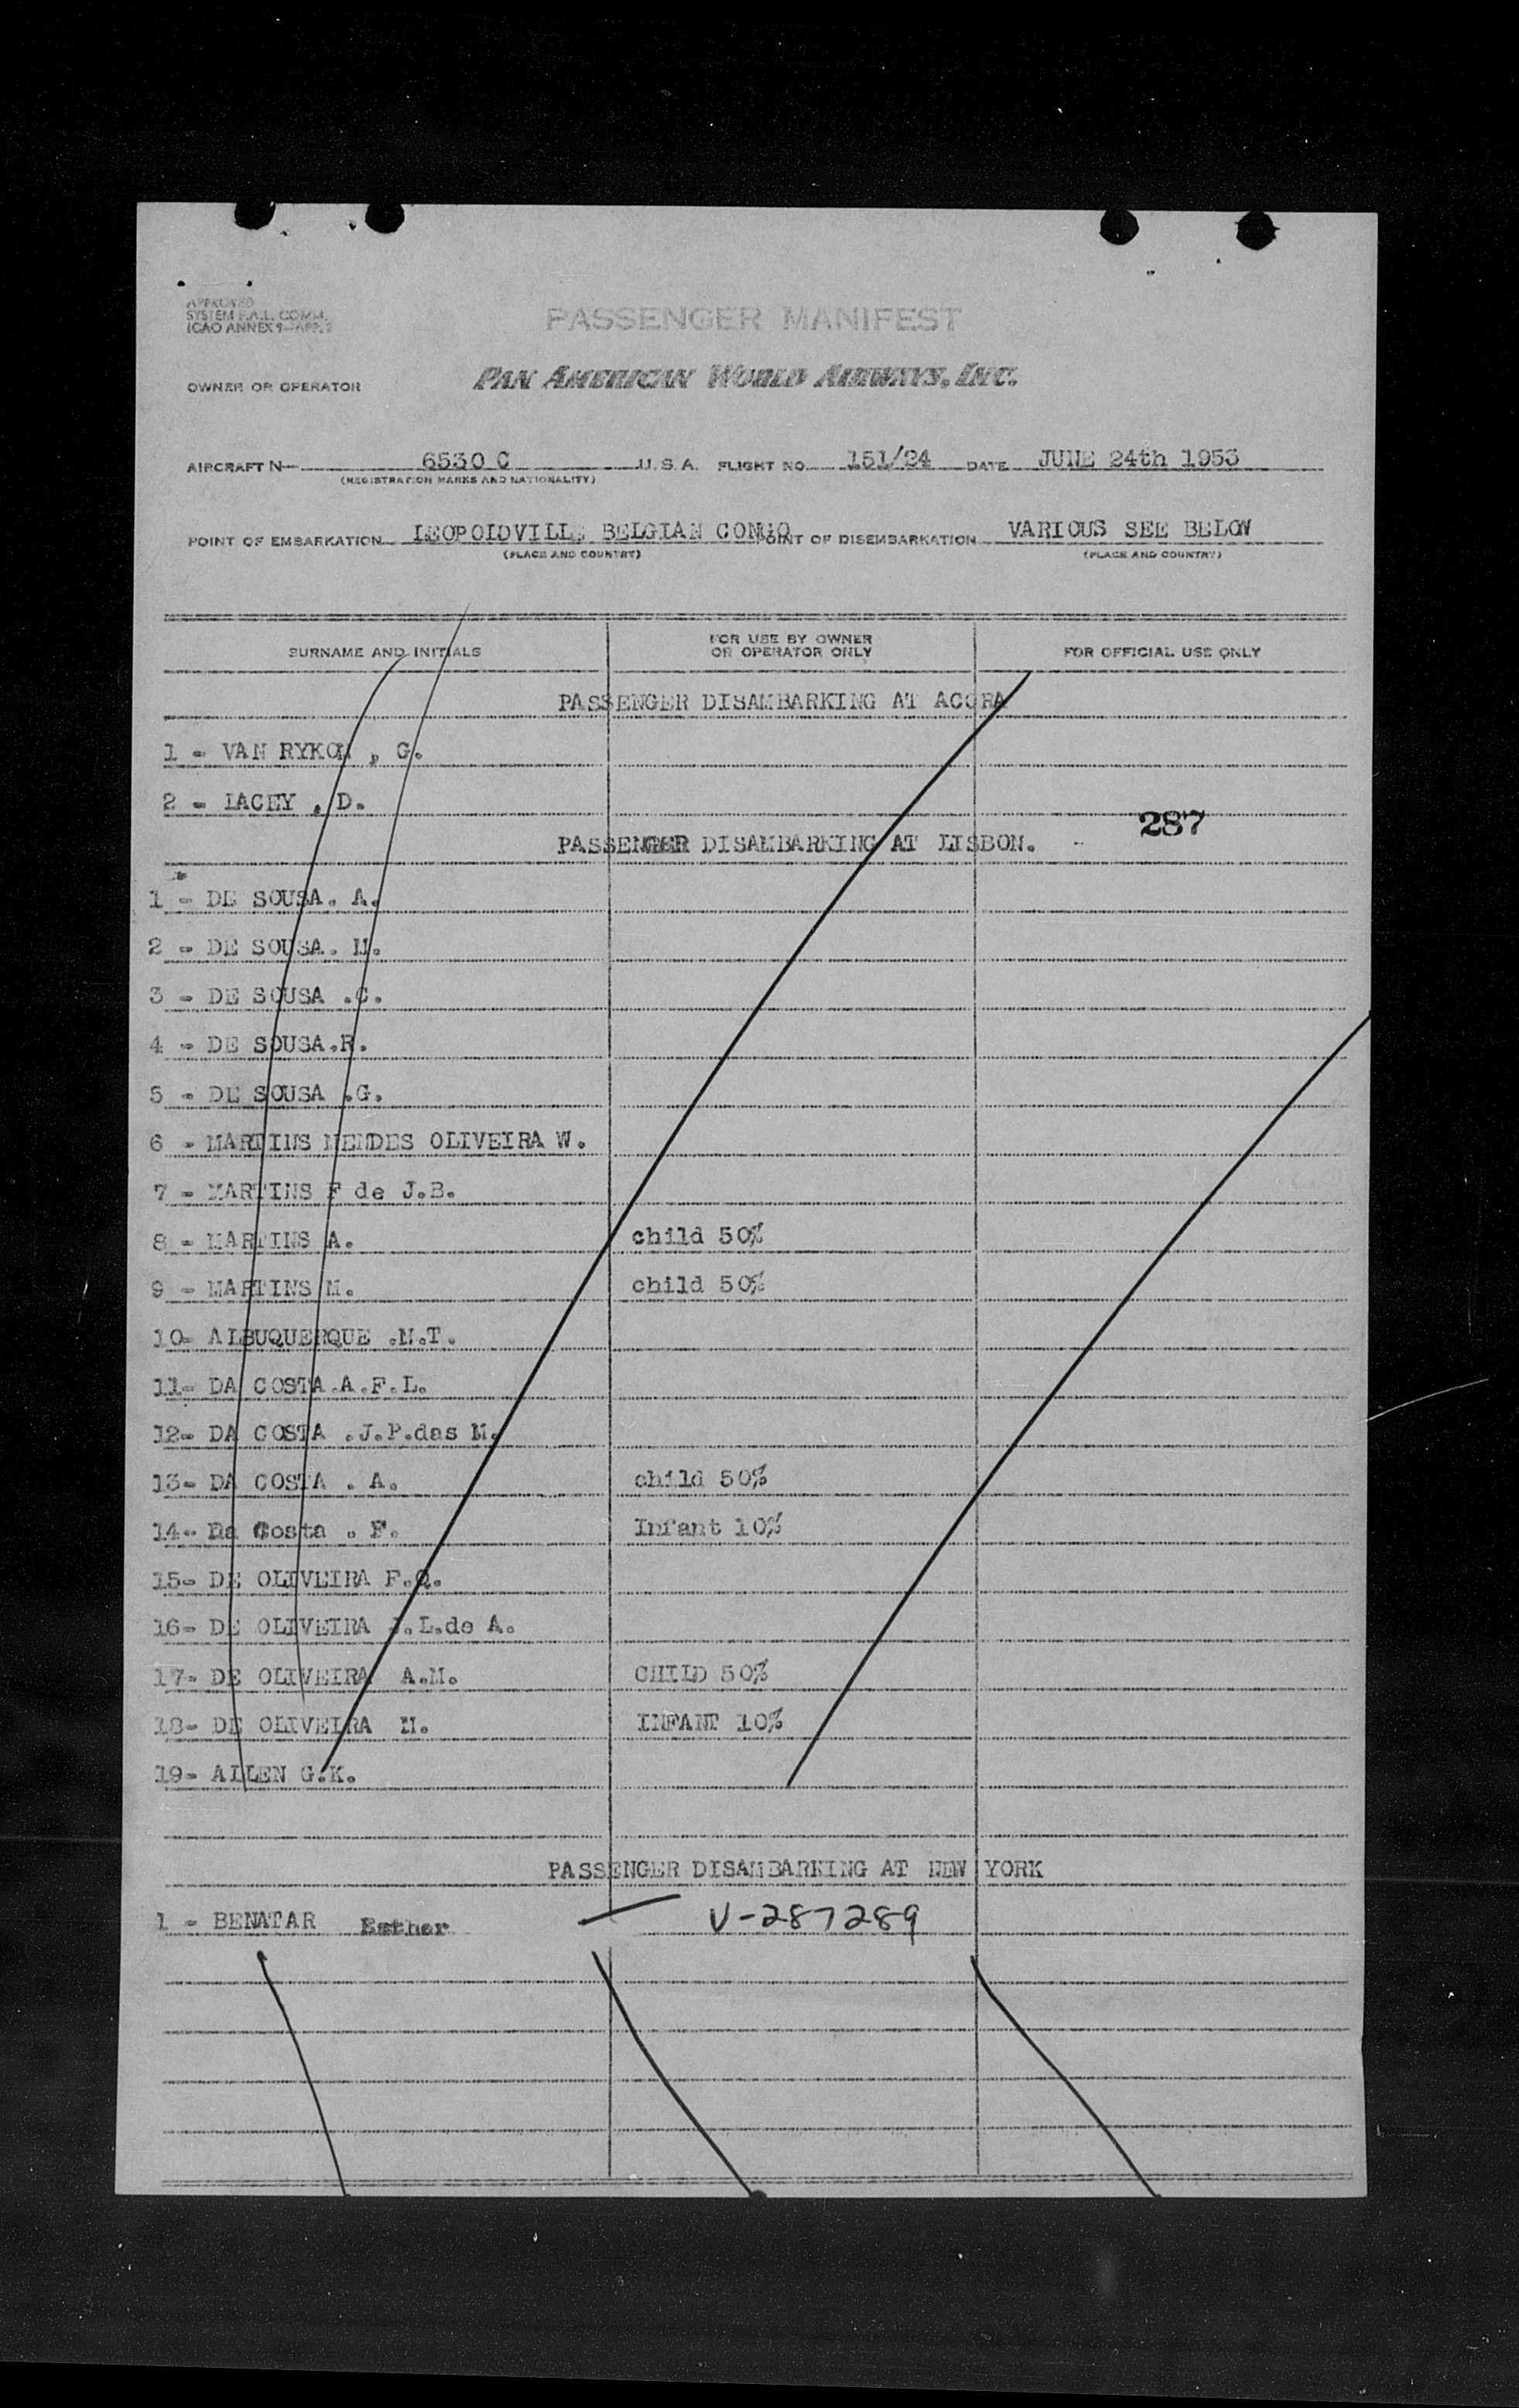 APPROVED
SYSTEM F.A.L. COMM.
ICAO ANNEX 9-APP. 2
PASSENGER MANIFEST
OWNER OR OPERATOR PAN AMERICAN WORLD AIRWAYS, INC.
AIRCRAFT N 6530 C U.S.A. FLIGHT NO. 151/24 DATE JUNE 24th 1953
(REGISTRATION MARKS AND NATIONALITY)
POINT OF EMBARKATION LEOPOLDVILLE BELGIAN CONGO POINT OF DISEMBARKATION VARIOUS SEE BELOW
(PLACE AND COUNTRY) (PLACE AND COUNTRY)
SURNAME AND INITIALS FOR USE BY OWNER OR OPERATOR ONLY FOR OFFICIAL USE ONLY
PASSENGER DISAMBARKING AT ACCRA
1 - VAN , G.
2 - LACEY , D.
287
PASSENGER DISAMBARKING AT LISBON.
1 - DE SOUSA. A.
2 - DE SOUSA. M.
3 - DE SOUSA .C.
4 - DE SOUSA.R.
5 - DE SOUSA .G.
6 - MARTINS MENDES OLIVEIRA W.
7 - MARTINS F de J.B.
8 - MARTINS A. child 50%
9 - MARTINS M. child 50%
10- ALBUQUERQUE .M.T.
11- DA COSTA.A.F.L.
12- DA COSTA .J.P.das M.
13- DA COSTA . A. child 50%
14- Da Costa . F. Infant 10%
15- DE OLIVEIRA F.Q.
16- DE OLIVEIRA J.L.de A.
17- DE OLIVEIRA A.M. CHILD 50%
18- DE OLIVEIRA M. INFANT 10%
19- ALLEN G.K.
PASSENGER DISAMBARKING AT NEW YORK
1 - BENATAR Esther V-287289